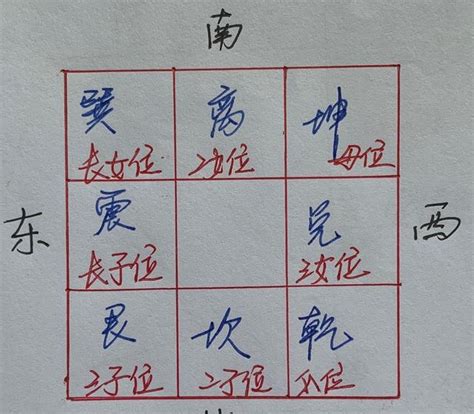 南
巽 离 坤
长女位 2女位 母位
东 震 兑 西
长子位 3女位
艮 坎 乾
三子位 二子位 父位